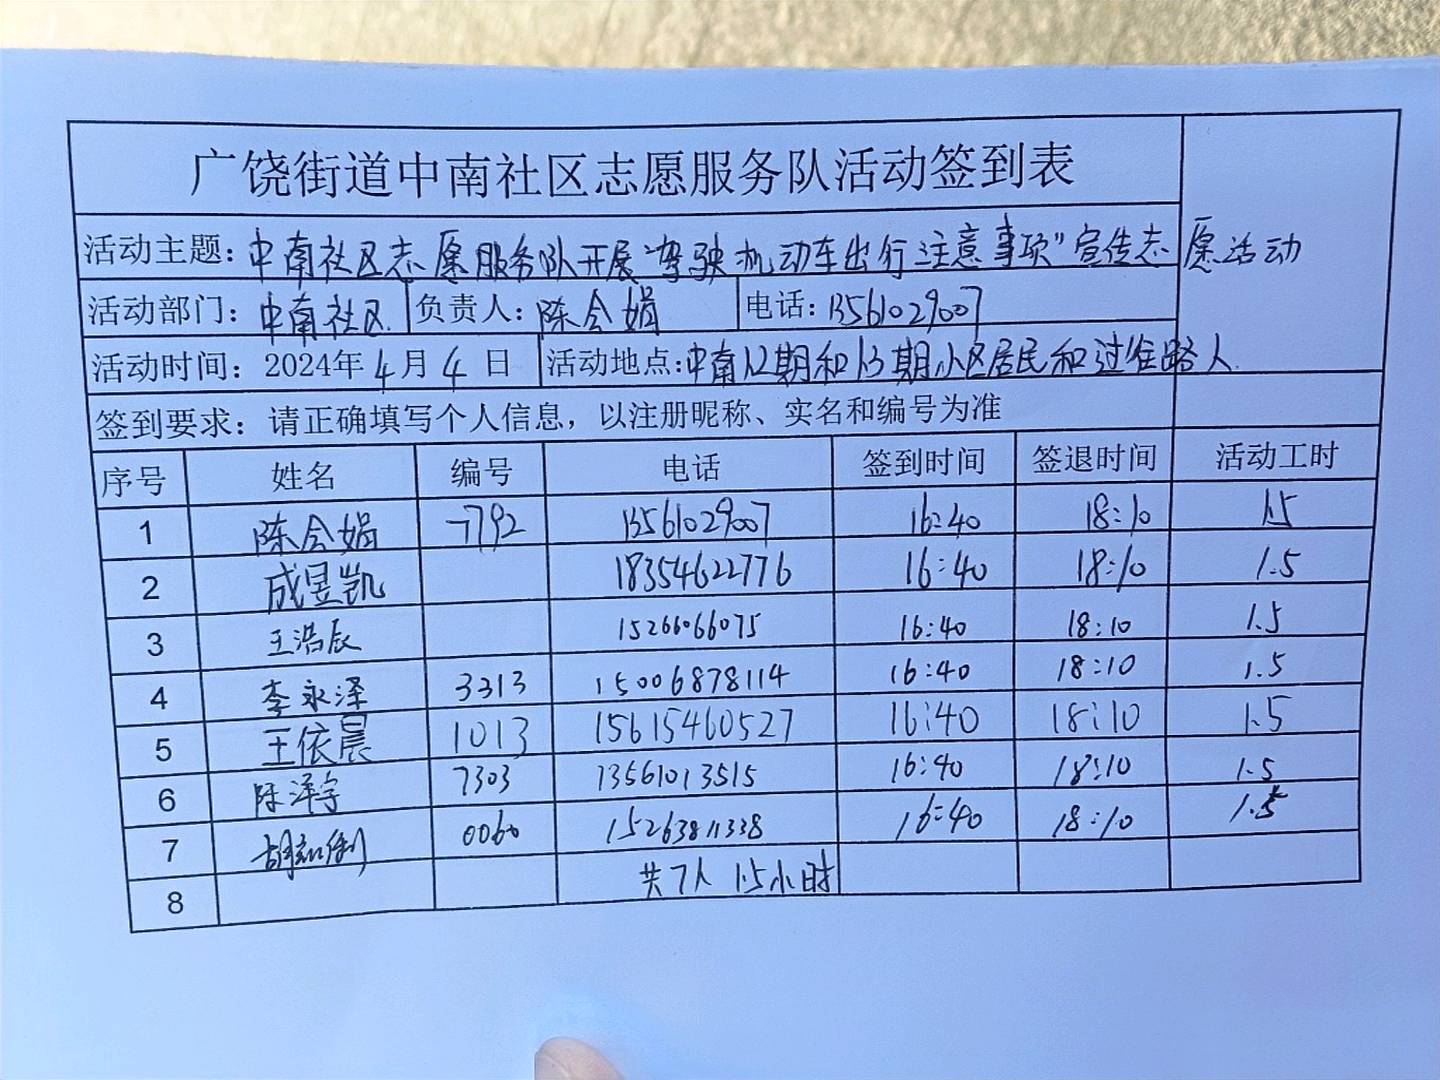 广饶街道中南社区志愿服务队活动签到表
活动主题：中南社区志愿服务队开展“驾驶机动车出行注意事项”宣传志愿活动
活动部门：中南社区 负责人：陈会娟 电话：13561029007
活动时间：2024年4月4日 活动地点：中南12期和13期小区居民和过往路人
签到要求：请正确填写个人信息，以注册昵称、实名和编号为准
序号 姓名 编号 电话 签到时间 签退时间 活动工时
1 陈会娟 7792 13561029007 16:40 18:10 1.5
2 成昱凯 18354622776 16:40 18:10 1.5
3 王浩辰 15266066075 16:40 18:10 1.5
4 李永泽 3313 15006878114 16:40 18:10 1.5
5 王依晨 1013 15615460527 16:40 18:10 1.5
6 陈泽宇 7303 13561013515 16:40 18:10 1.5
7 0060 15263811338 16:40 18:10 1.5
8 共7人 1.5小时